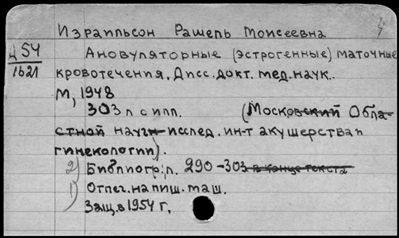 Израильсон Рашель Моисеевна
Д54
1621
Ановуляторные (эстрогенные) маточные
кровотечения. Дисс. докт. мед. наук.
М, 1948
303 л с илл. (Московский Обла-
стной научн-исслед. ин-т акушерства и
гинекологии).
2) Библиогр: л. 290-303 в конце текста
1) Отпеч. на пиш. маш.
Защ. в 1954 г.